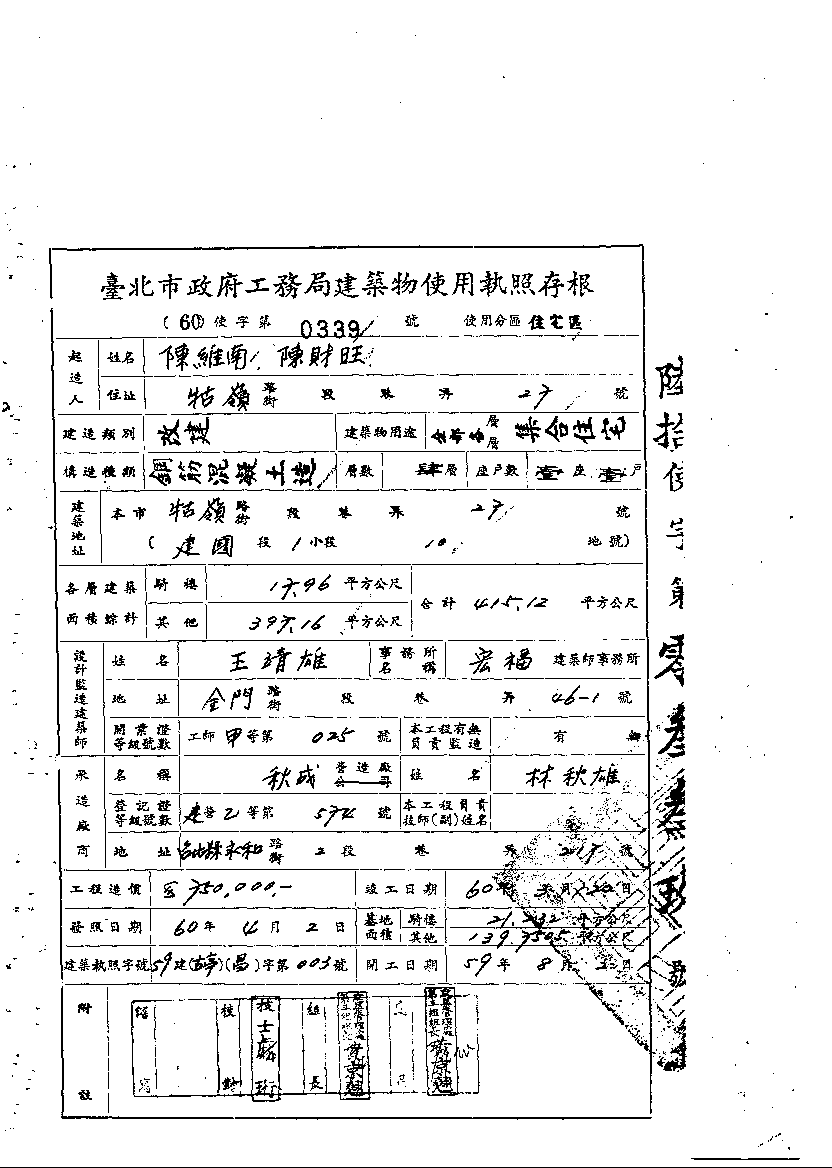 臺北市政府工務局建築物使用執照存根
(60)使字第 0339 號 使用分區 住宅區
起造人 姓名 陳維南、陳財旺
住址 牯嶺 路街 段 巷 弄 27 號
建造類別 改建 建築物用途 全部各層層 集合住宅
構造種類 鋼筋混凝土造 層數 肆層 座戶數 壹座 壹戶
建築地址 本市 牯嶺 路街 段 巷 弄 27 號
(建國 段 1 小段 10 地號)
各層建築面積綜計 騎樓 17.96 平方公尺 合計 415.12 平方公尺
其他 397.16 平方公尺
設計監造建築師 姓名 王靖雄 事務所名稱 宏福 建築師事務所
地址 金門 路街 段 巷 弄 46-1 號
開業證等級號數 工師 甲 等第 025 號 本工程有無負責監造 有
承造廠商 名稱 秋成 營造廠公司 姓名 林秋雄
登記證等級號數 建營乙等第 574 號 本工程負責技師(副)姓名
地址 台北縣永和 路街 2 段 巷 弄 217 號
工程造價 750,000.- 竣工日期 60年 3月 22日
發照日期 60年 4月 2日 基地面積 騎樓 21.232 平方公尺
其他 139.7505 平方公尺
建築執照字號 59建()()字第003號 開工日期 59年 8月 日
附註
技士 組長
陸拾使字第零叁叁玖號